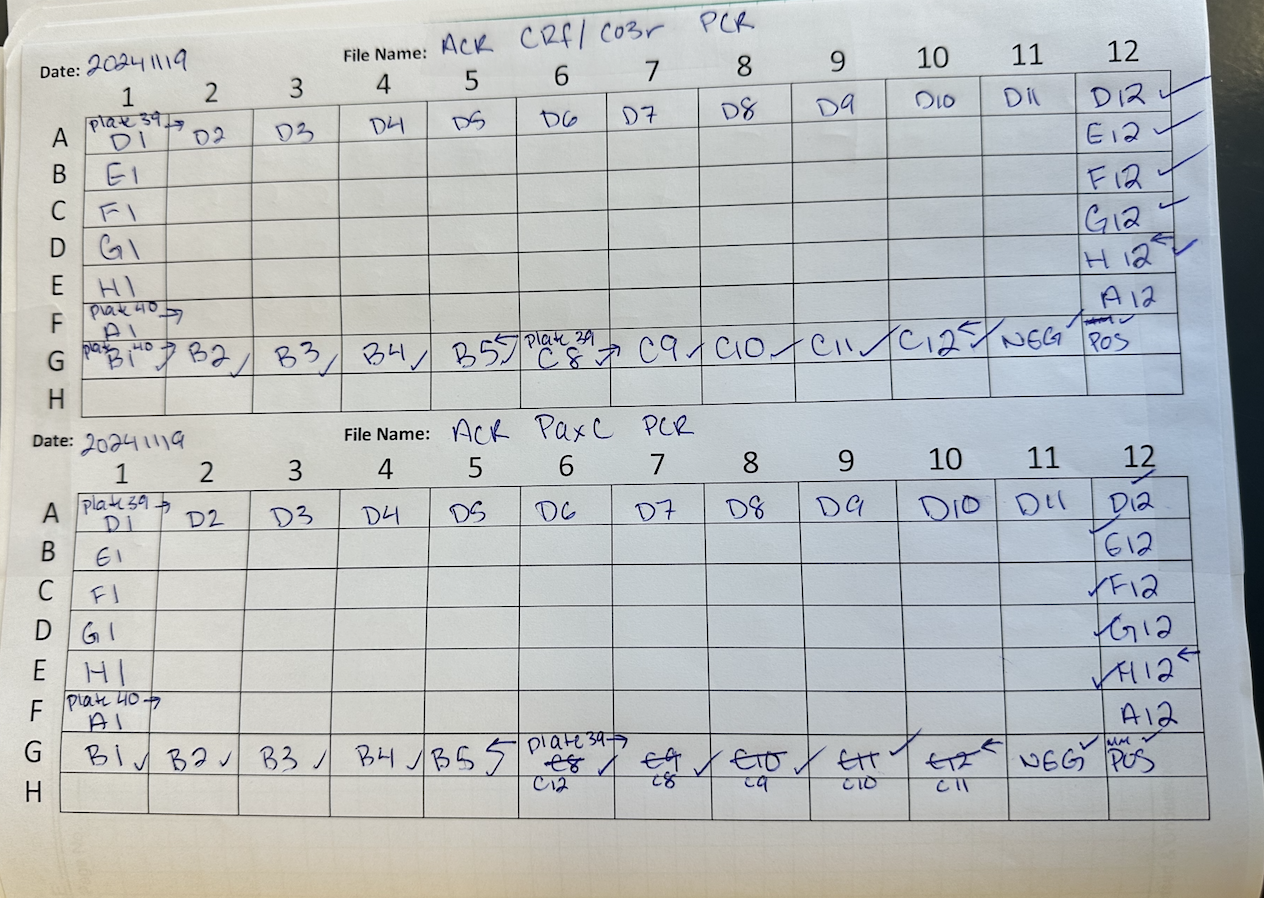 Date: 20241119 File Name: ACR CRf/CO3r PCR
1 2 3 4 5 6 7 8 9 10 11 12
plate 39 →
A D1 D2 D3 D4 D5 D6 D7 D8 D9 D10 D11 D12 ✓
B E1 E12 ✓
C F1 F12 ✓
D G1 G12 ✓
E H1 H12 ← ✓
plate 40 →
F A1 A12
plate 40 → plate 39 →
G B1 ✓ B2 ✓ B3 ✓ B4 ✓ B5 ← ✓ C8 C9 ✓ C10 ✓ C11 ✓ C12 ← ✓ NEG ✓ POS ✓
H
Date: 20241119 File Name: ACR PaxC PCR
1 2 3 4 5 6 7 8 9 10 11 12
plate 39 →
A D1 D2 D3 D4 D5 D6 D7 D8 D9 D10 D11 D12 ✓
B E1 E12 ✓
C F1 F12 ✓
D G1 G12 ✓
E H1 H12 ← ✓
plate 40 →
F A1 A12
plate 39 →
G B1 ✓ B2 ✓ B3 ✓ B4 ✓ B5 ← ✓ C8 ✓ C9 ✓ C10 ✓ C11 ✓ C12 ← NEG ✓ POS ✓
C12 C8 C9 C10 C11
H